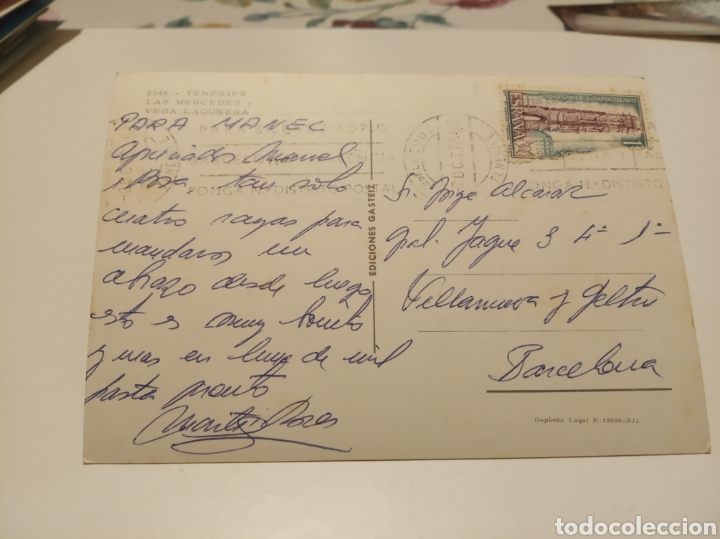 2546.- TENERIFE
LAS MERCEDES y
VEGA LAGUNERA
PARA MANEL
Apreciados Manel
y Rosa tan solo
cuatro rayas para
mandaros un
abrazo desde luego
esto es muy bonito
y mas en luna de miel
hasta pronto
EDICIONES GASTEIZ
ESPAÑA
PONGA N.º DISTRITO POSTAL
PONGA N.º DISTRITO
Sr. Jorge Alcaraz
Gral. Yague 3 4º 1ª
Villanueva y Geltru
Barcelona
Depósito Legal B.
todocoleccion